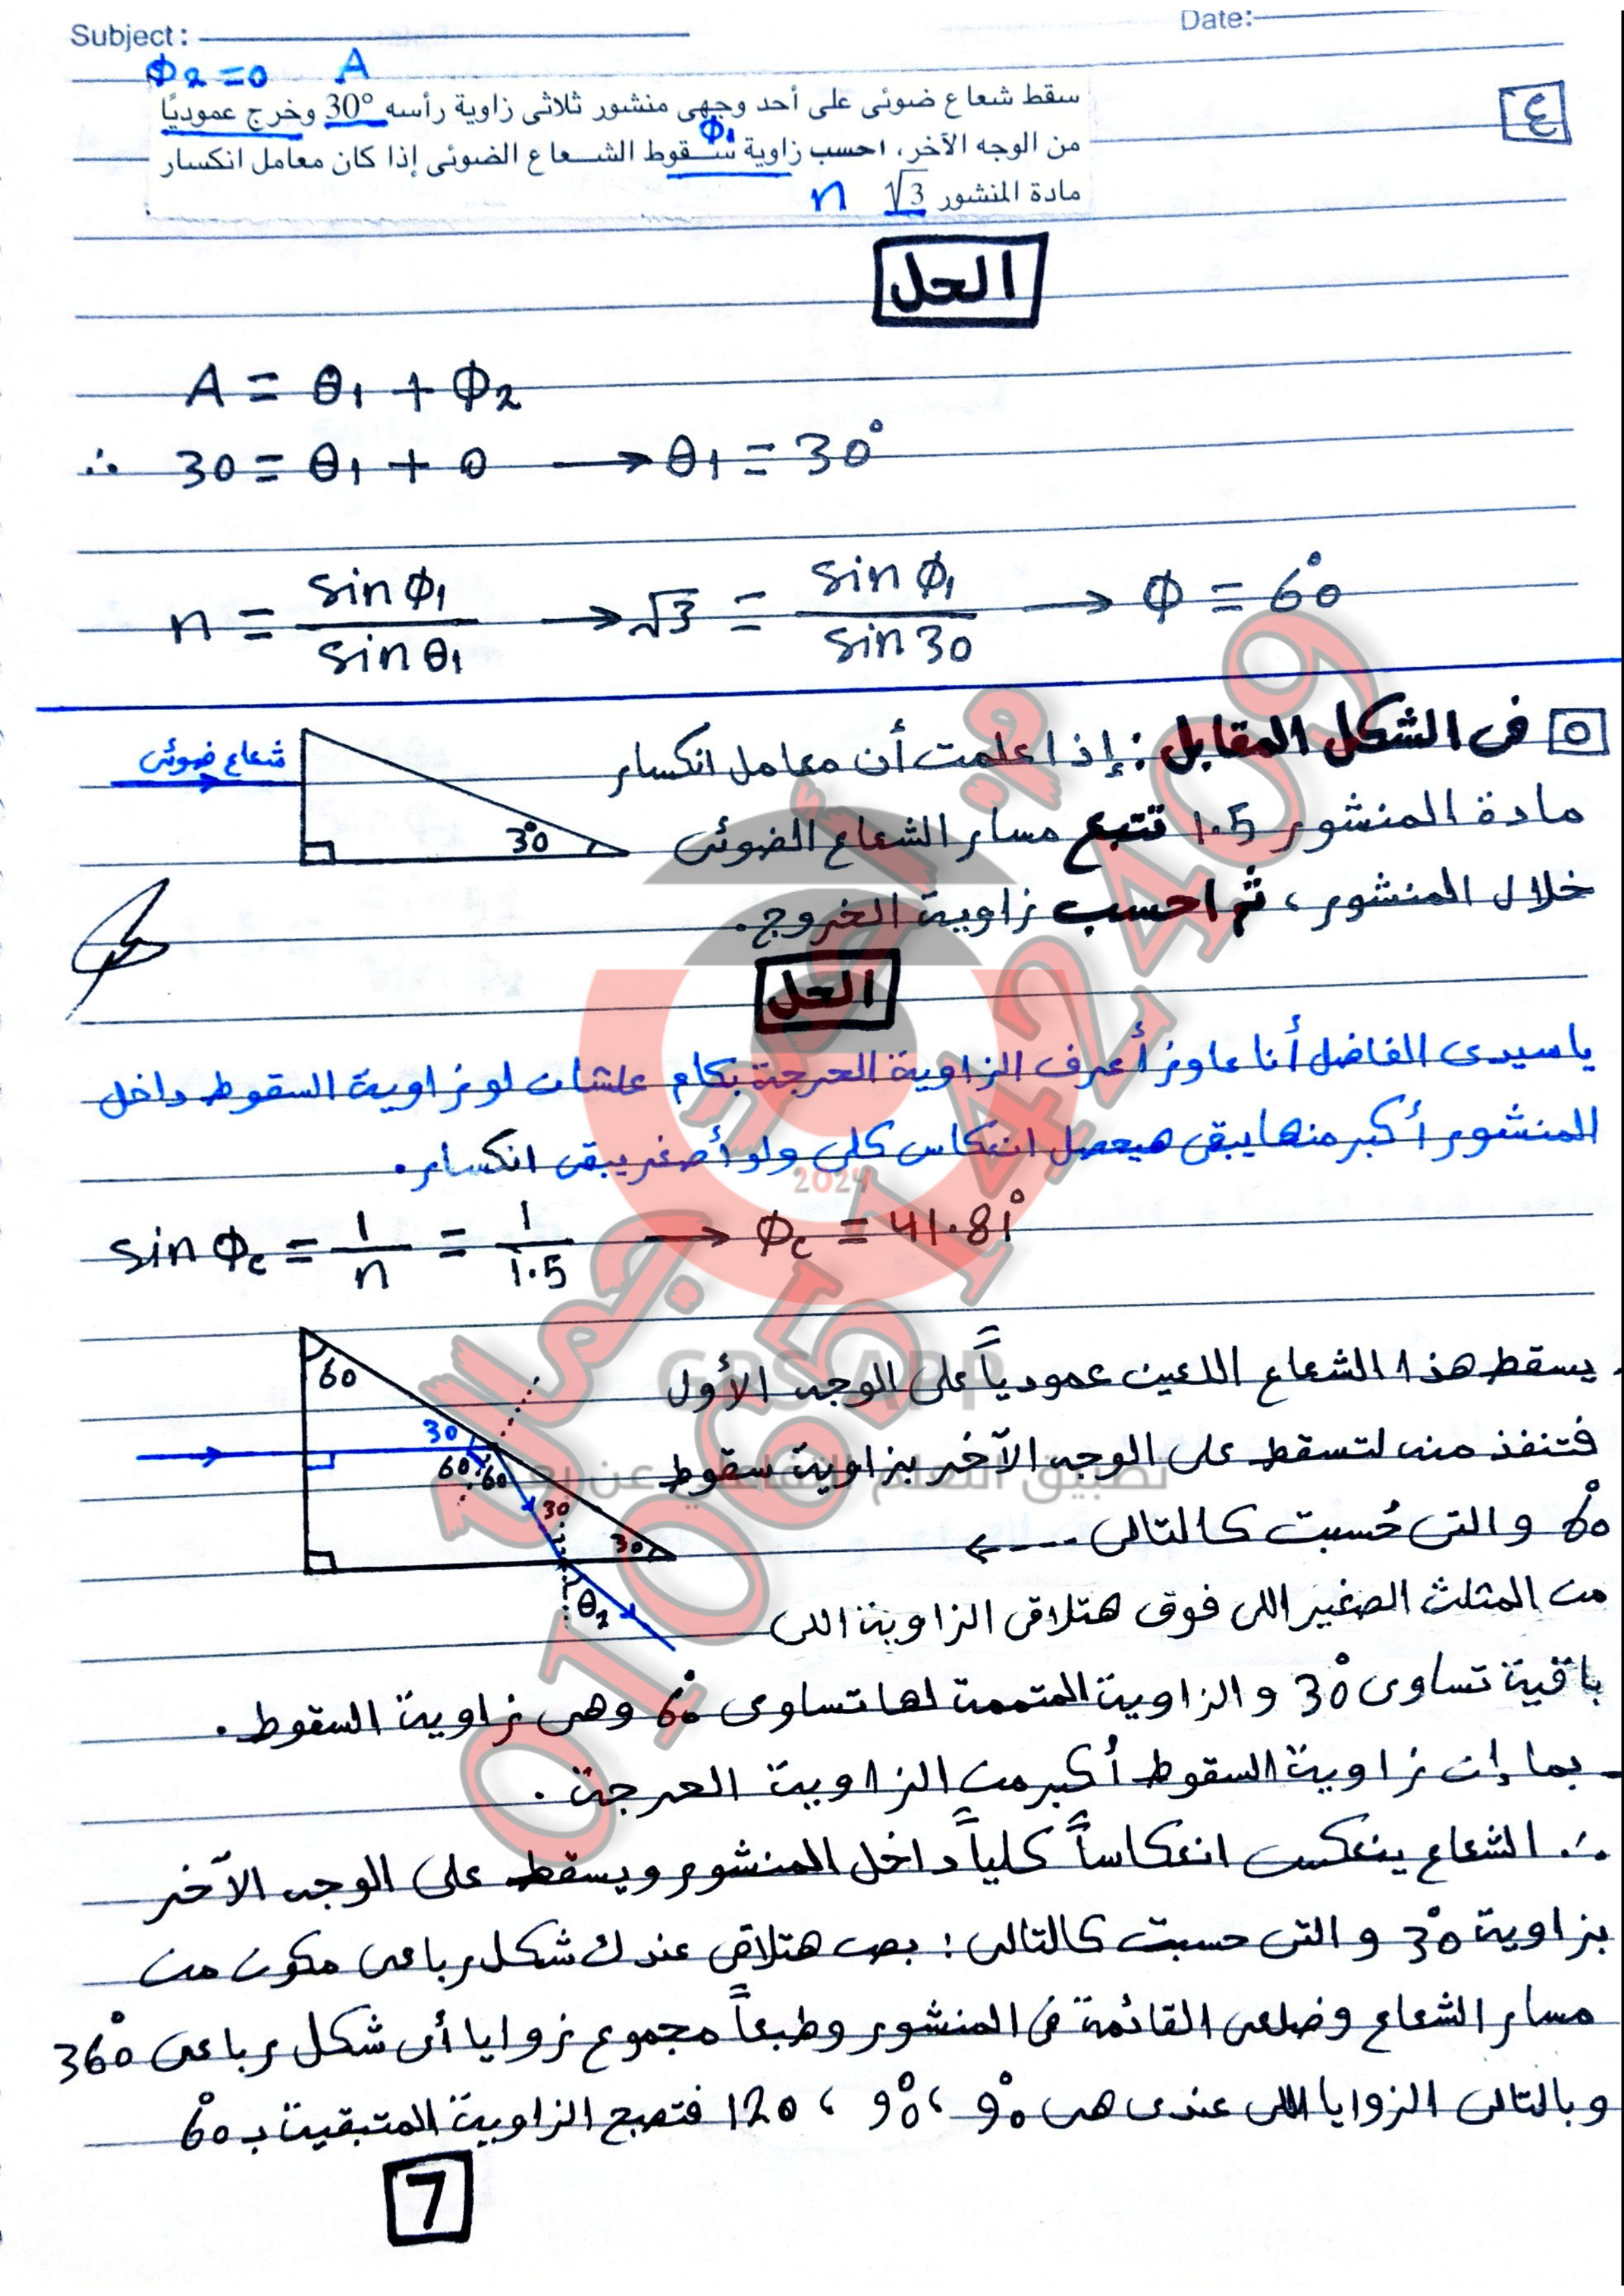 Subject:
Date:
Φ2 = 0 A
٤
سقط شعاع ضوئى على أحد وجهى منشور ثلاثى زاوية رأسه 30° وخرج عموديًا
Φ1
من الوجه الآخر، احسب زاوية سقوط الشعاع الضوئى إذا كان معامل انكسار
مادة المنشور √3 n
الحل
A = θ1 + Φ2
∴ 30 = θ1 + 0 → θ1 = 30°
n = sin Φ1 / sin θ1 → √3 = sin Φ1 / sin 30 → Φ = 60°
٥ فى الشكل المقابل : إذا علمت أن معامل انكسار
شعاع ضوئى
30°
مادة المنشور 1.5 تتبع مسار الشعاع الضوئى
خلال المنشور ، ثم احسب زاوية الخروج.
الحل
ياسيدى الفاضل أنا عاوز أعرف الزاوية الحرجة بكام علشان لو زاوية السقوط داخل
المنشور أكبر منها يبقى هيحصل انعكاس كلى ولو أصغر يبقى انكسار.
2024
sin Φc = 1/n = 1/1.5 → Φc = 41.81°
GPS APP
تطبيق التعلم التفاعلي عن بعد
- يسقط هذا الشعاع اللعين عمودياً على الوجه الأول
فتنفذ منه لتسقط على الوجه الآخر بزاوية سقوط
60° والتى حُسبت كالتالى ---->
60
30
60 60
30
30
θ2
من المثلث الصغير اللى فوق هتلاقى الزاوية اللى
باقية تساوى 30° والزاوية المتممة لها تساوى 60° وهى زاوية السقوط .
- بما إن زاوية السقوط أكبر من الزاوية الحرجة .
∴ الشعاع ينعكس انعكاساً كلياً داخل المنشور ويسقط على الوجه الآخر
بزاوية 30° والتى حسبت كالتالى : بص هتلاقى عندك شكل رباعى مكون من
مسار الشعاع وضلعى القائمة فى المنشور وطبعاً مجموع زوايا أى شكل رباعى 360°
وبالتالى الزوايا اللى عندى هى 90° ، 90° ، 120 فتصبح الزاوية المتبقية بـ 60°
7
م أحمد جمال
01065142409